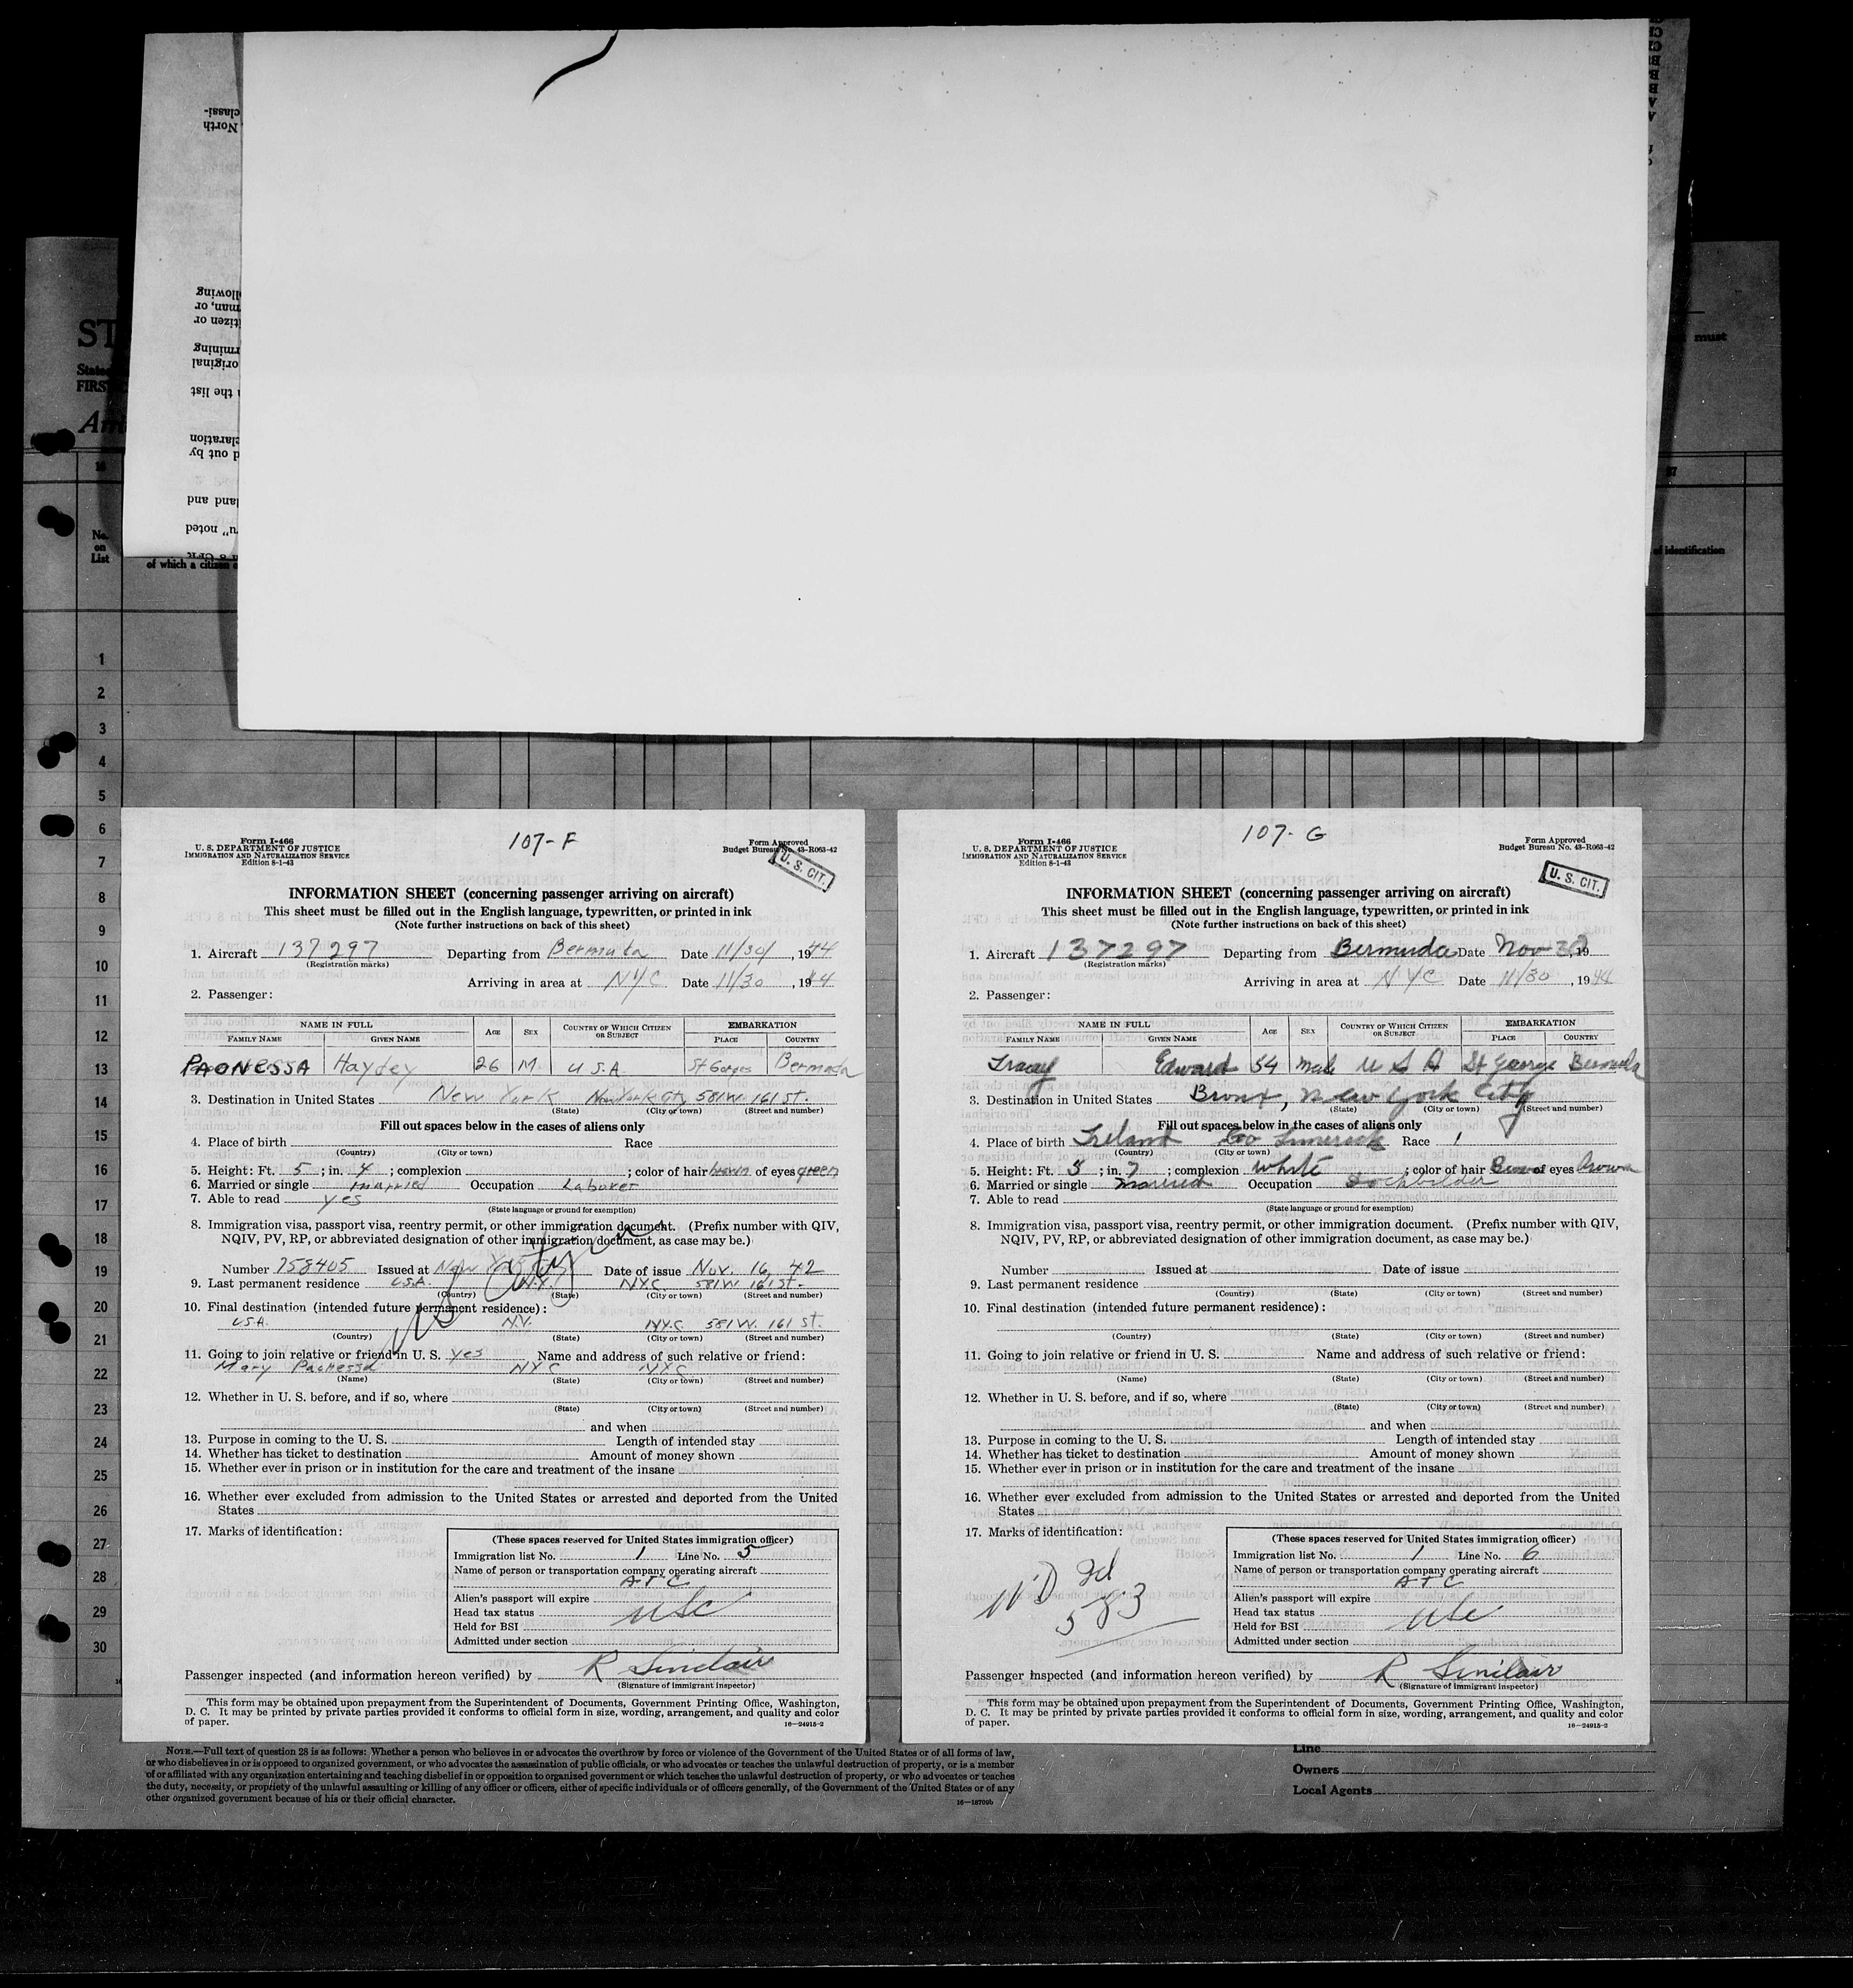 107-F
Form I-466
U. S. DEPARTMENT OF JUSTICE
IMMIGRATION AND NATURALIZATION SERVICE
Edition 8-1-43
Form Approved
Budget Bureau No. 43-R063-42
U. S. CIT.
INFORMATION SHEET (concerning passenger arriving on aircraft)
This sheet must be filled out in the English language, typewritten, or printed in ink
(Note further instructions on back of this sheet)
1. Aircraft 137297 Departing from Bermuda Date 11/30/, 1944
(Registration marks)
Arriving in area at NYC Date 11/30, 1944
2. Passenger:
NAME IN FULL AGE SEX COUNTRY OF WHICH CITIZEN OR SUBJECT EMBARKATION
FAMILY NAME GIVEN NAME PLACE COUNTRY
PAONESSA Haydey 26 M. U.S.A. St Gorges Bermuda
3. Destination in United States New York New York City 581 W. 161 St.
(State) (City or town) (Street and number)
Fill out spaces below in the cases of aliens only
4. Place of birth Race
(Country) (City or town)
5. Height: Ft. 5; in. 4; complexion ; color of hair brown of eyes green
6. Married or single married Occupation Laborer
7. Able to read yes
(State language or ground for exemption)
8. Immigration visa, passport visa, reentry permit, or other immigration document. (Prefix number with QIV,
NQIV, PV, RP, or abbreviated designation of other immigration document, as case may be.)
Number 758405 Issued at New York Date of issue Nov. 16, 42
9. Last permanent residence U.S.A. N.Y. NYC 581 W. 161 St.
(Country) (State) (City or town) (Street and number)
10. Final destination (intended future permanent residence):
U.S.A. N.Y. N.Y.C 581 W. 161 St.
(Country) (State) (City or town) (Street and number)
11. Going to join relative or friend in U. S. yes Name and address of such relative or friend:
Mary Paonessa NYC NYC
(Name) (State) (City or town) (Street and number)
12. Whether in U. S. before, and if so, where
(State) (City or town) (Street and number)
and when
13. Purpose in coming to the U. S. Length of intended stay
14. Whether has ticket to destination Amount of money shown
15. Whether ever in prison or in institution for the care and treatment of the insane
16. Whether ever excluded from admission to the United States or arrested and deported from the United
States
17. Marks of identification:
(These spaces reserved for United States immigration officer)
Immigration list No. 1 Line No. 5
Name of person or transportation company operating aircraft
ATC
Alien's passport will expire
Head tax status USC
Held for BSI
Admitted under section
Passenger inspected (and information hereon verified) by R Sinclair
(Signature of immigrant inspector)
This form may be obtained upon prepayment from the Superintendent of Documents, Government Printing Office, Washington,
D. C. It may be printed by private parties provided it conforms to official form in size, wording, arrangement, and quality and color
of paper.
16—24915-2
107-G
Form I-466
U. S. DEPARTMENT OF JUSTICE
IMMIGRATION AND NATURALIZATION SERVICE
Edition 8-1-43
Form Approved
Budget Bureau No. 43-R063-42
U. S. CIT.
INFORMATION SHEET (concerning passenger arriving on aircraft)
This sheet must be filled out in the English language, typewritten, or printed in ink
(Note further instructions on back of this sheet)
1. Aircraft 137297 Departing from Bermuda Date Nov 30, 19
(Registration marks)
Arriving in area at NYC Date 11/30, 1944
2. Passenger:
NAME IN FULL AGE SEX COUNTRY OF WHICH CITIZEN OR SUBJECT EMBARKATION
FAMILY NAME GIVEN NAME PLACE COUNTRY
Tracey Edward 54 Male U S A St George Bermuda
3. Destination in United States Bronx, New York City
(State) (City or town) (Street and number)
Fill out spaces below in the cases of aliens only
4. Place of birth Ireland Co Limerick Race 1
(Country) (City or town)
5. Height: Ft. 5; in. 7; complexion white; color of hair of eyes brown
6. Married or single married Occupation Dockbilder
7. Able to read
(State language or ground for exemption)
8. Immigration visa, passport visa, reentry permit, or other immigration document. (Prefix number with QIV,
NQIV, PV, RP, or abbreviated designation of other immigration document, as case may be.)
Number Issued at Date of issue
9. Last permanent residence
(Country) (State) (City or town) (Street and number)
10. Final destination (intended future permanent residence):
(Country) (State) (City or town) (Street and number)
11. Going to join relative or friend in U. S. Name and address of such relative or friend:
(Name) (State) (City or town) (Street and number)
12. Whether in U. S. before, and if so, where
(State) (City or town) (Street and number)
and when
13. Purpose in coming to the U. S. Length of intended stay
14. Whether has ticket to destination Amount of money shown
15. Whether ever in prison or in institution for the care and treatment of the insane
16. Whether ever excluded from admission to the United States or arrested and deported from the United
States
17. Marks of identification:
583
(These spaces reserved for United States immigration officer)
Immigration list No. 1 Line No. 6
Name of person or transportation company operating aircraft
ATC
Alien's passport will expire
Head tax status USC
Held for BSI
Admitted under section
Passenger inspected (and information hereon verified) by R Sinclair
(Signature of immigrant inspector)
This form may be obtained upon prepayment from the Superintendent of Documents, Government Printing Office, Washington,
D. C. It may be printed by private parties provided it conforms to official form in size, wording, arrangement, and quality and color
of paper.
16—24915-2
No.
on
List
of which a citizen
of identification
must
1
2
3
4
5
6
7
8
9
10
11
12
13
14
15
16
17
18
19
20
21
22
23
24
25
26
27
28
29
30
NOTE.—Full text of question 28 is as follows: Whether a person who believes in or advocates the overthrow by force or violence of the Government of the United States or of all forms of law,
or who disbelieves in or is opposed to organized government, or who advocates the assassination of public officials, or who advocates or teaches the unlawful destruction of property, or is a member
of or affiliated with any organization entertaining and teaching disbelief in or opposition to organized government or which teaches the unlawful destruction of property, or who advocates or teaches
the duty, necessity, or propriety of the unlawful assaulting or killing of any officer or officers, either of specific individuals or of officers generally, of the Government of the United States or of any
other organized government because of his or their official character.
16—18709b
Line
Owners
Local Agents